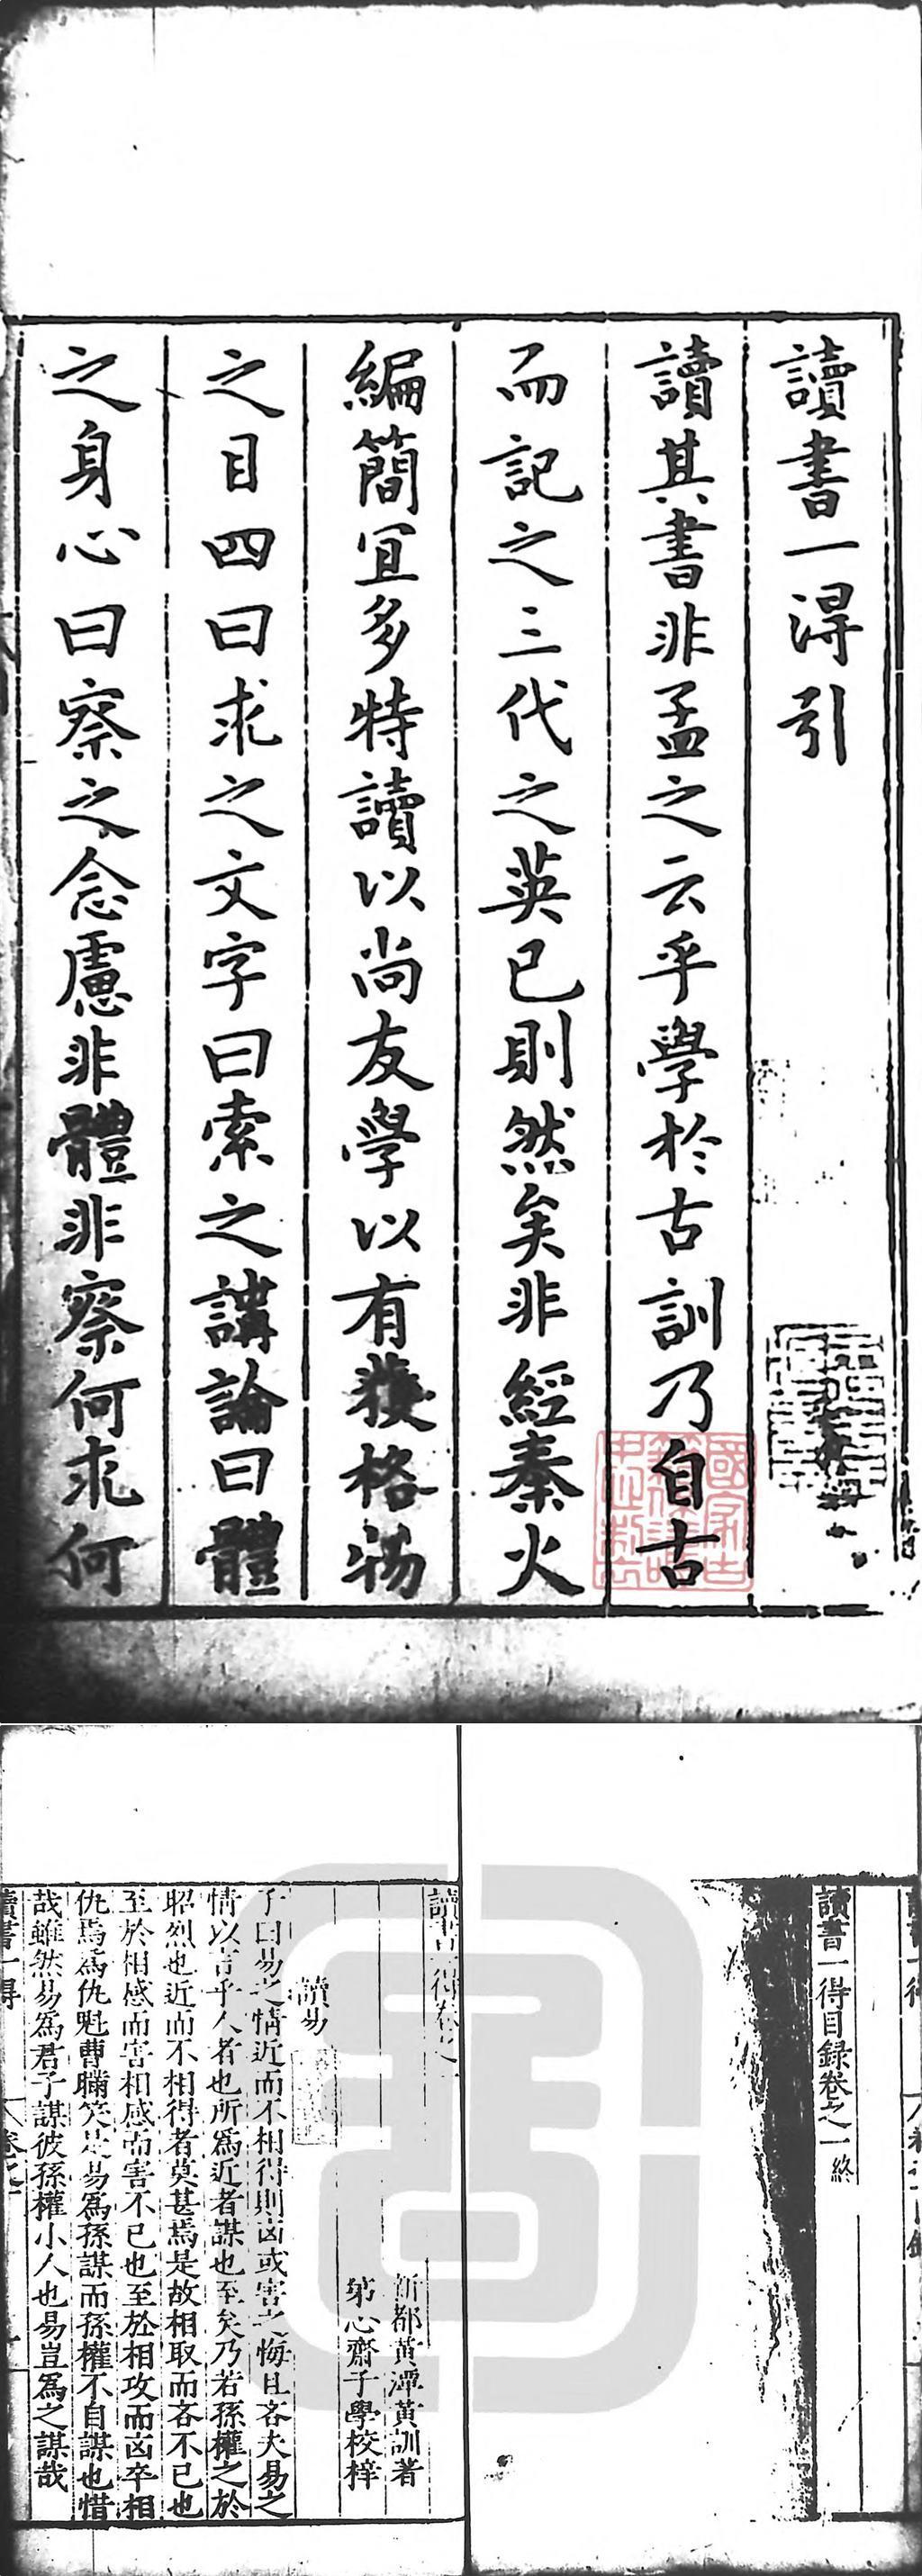 讀書一得引
讀其書非孟之云乎學於古訓乃自古
而記之三代之英已則然矣非經秦火
編簡宜多特讀以尚友學以有獲格物
之目四曰求之文字曰索之講論曰體
之身心曰察之念慮非體非察何求何
讀書一得目録卷之一終
讀書一得卷之一
新都黃潭黃訓著
弟心齋子學校梓
讀易
子曰易之情近而不相得則凶或害之悔且吝夫易之
情以言乎人者也所爲近者謀也至矣乃若孫權之於
昭烈也近而不相得者莫甚焉是故相取而吝不已也
至於相感而害相感而害不已也至於相攻而凶卒相
仇焉爲仇魁曹瞞笑是易爲孫謀而孫權不自謀也惜
哉雖然易爲君子謀彼孫權小人也易豈爲之謀哉
讀書一得
卷之一